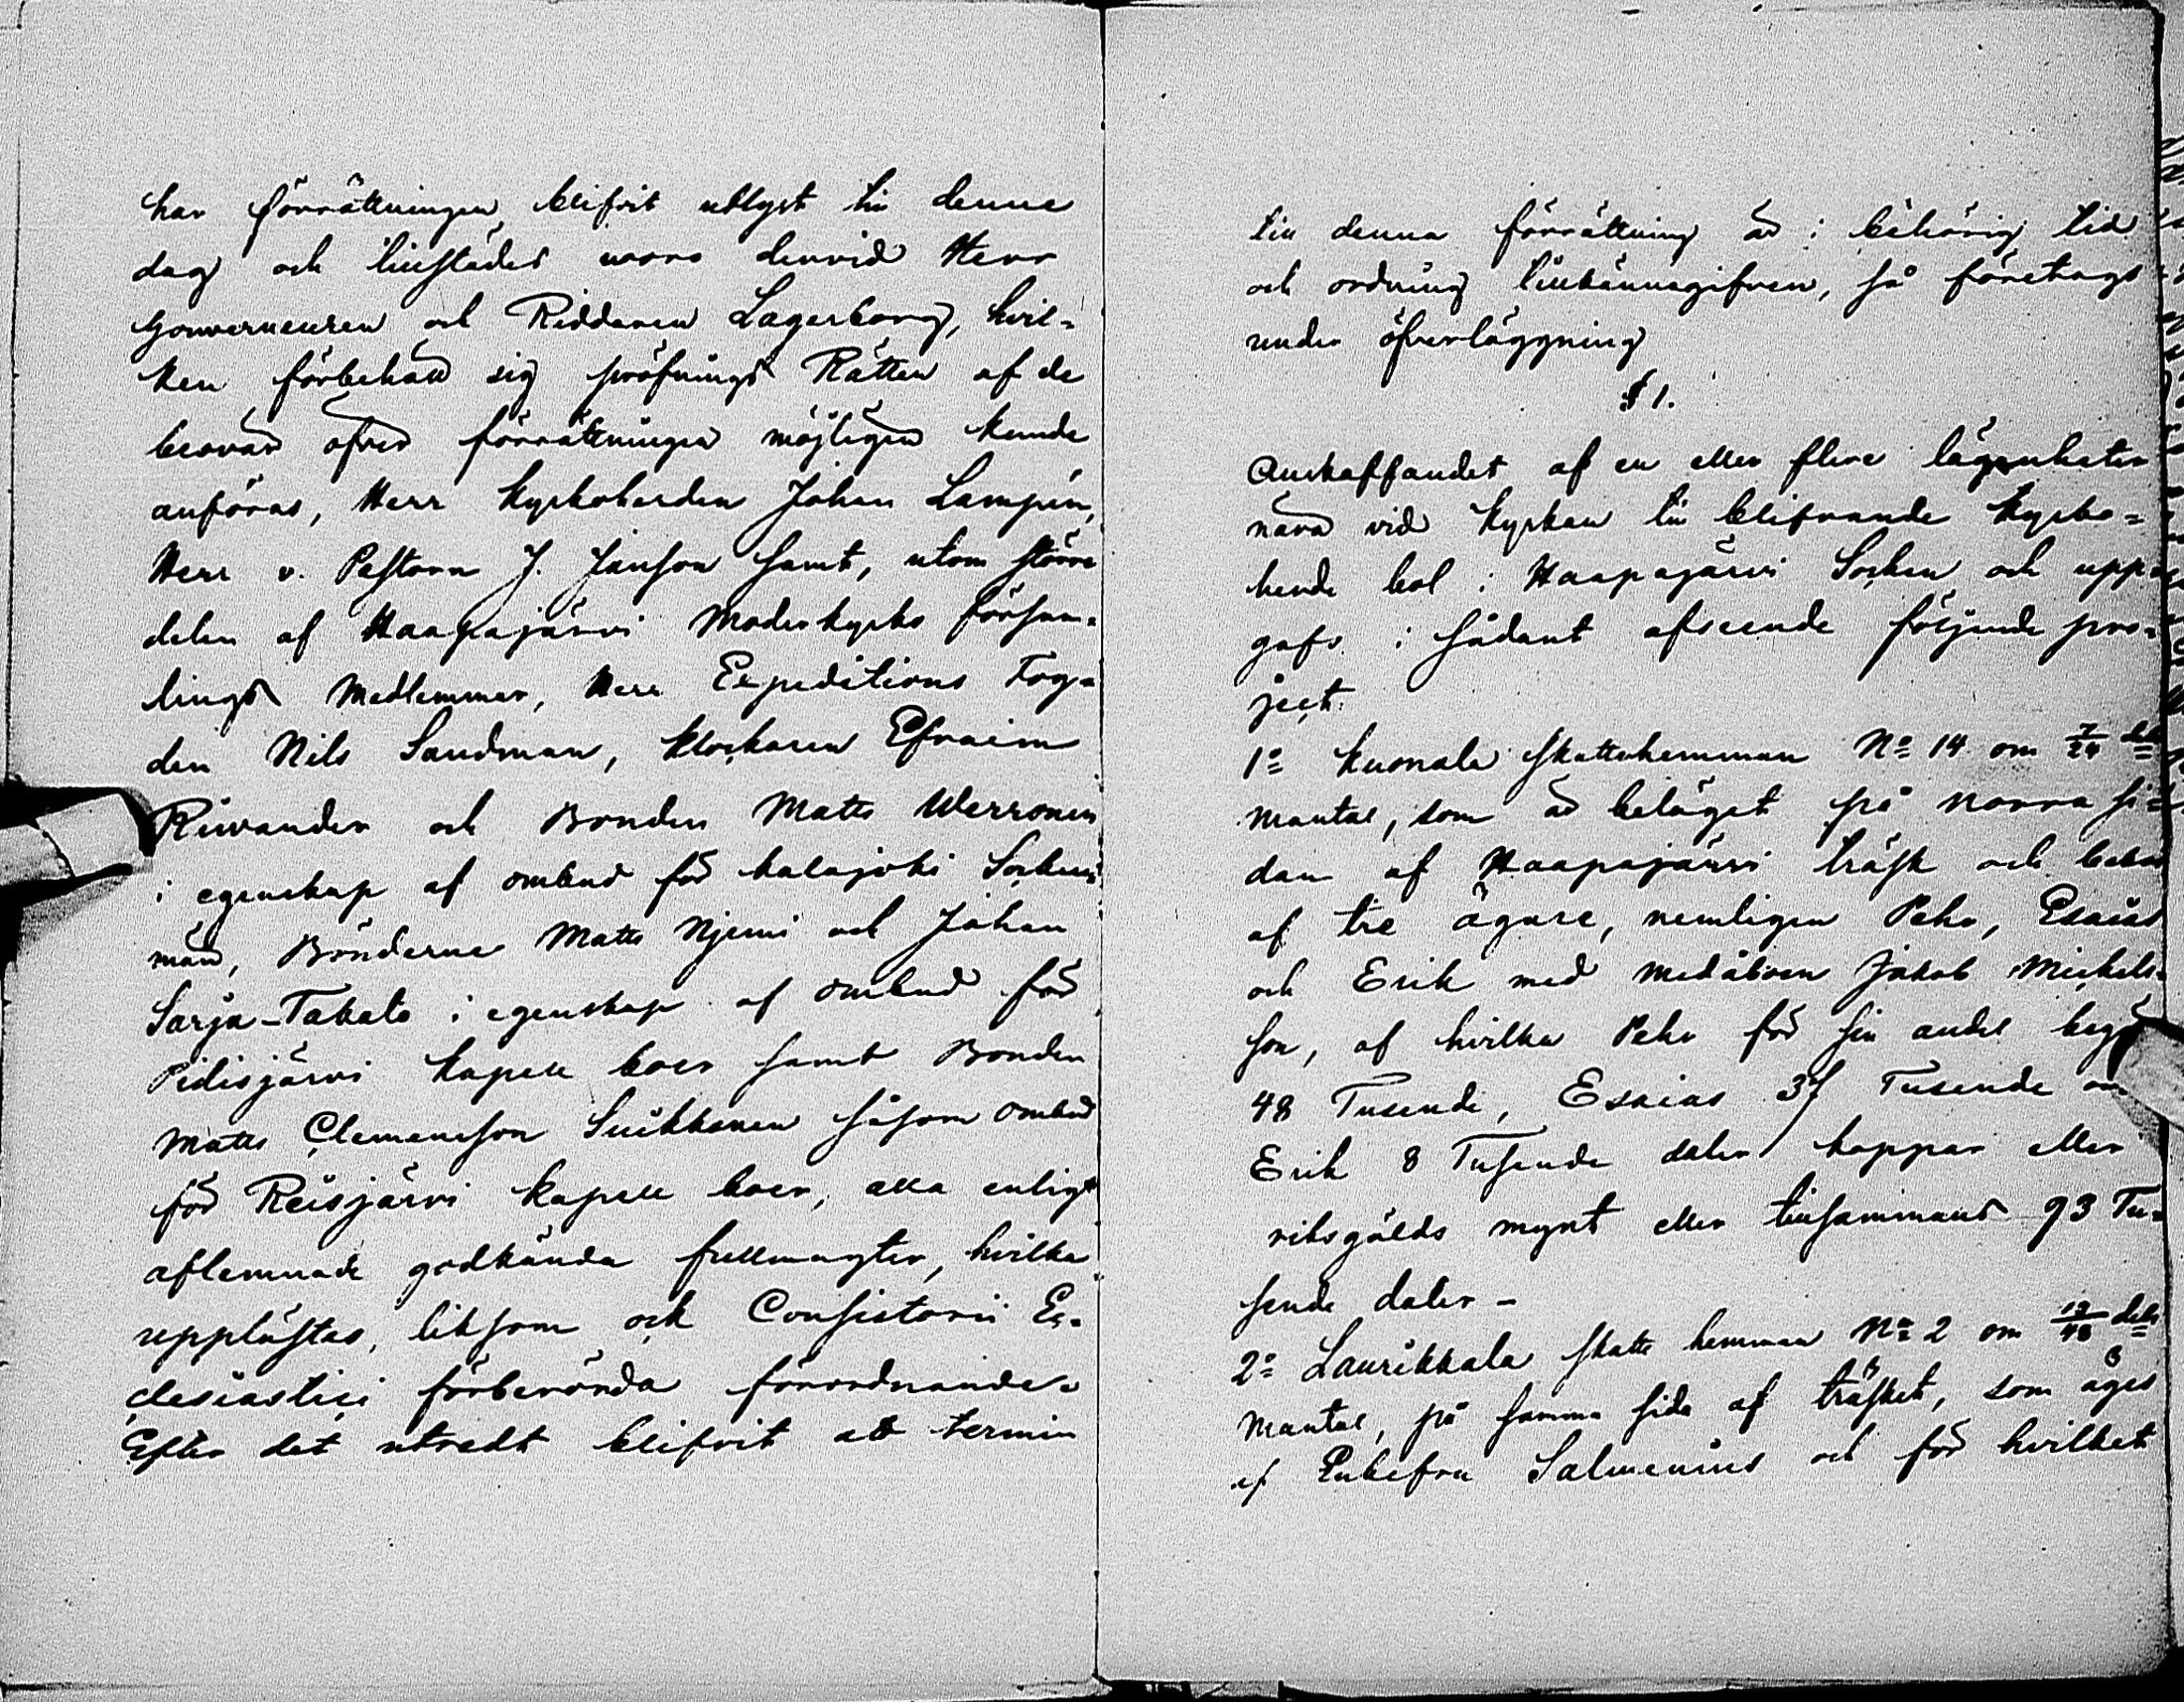 har förrättningen blifvit utlyst till denne
dag och tillstädes woro dervid Herr
Gouverneuren och Riddaren Lagerborg, hvil=
ken förbehöll sig pröfnings Rätten af de
besvär öfver förrättningen möjligen kunde
anföras, Herr Kyrkoherden Johan Lampén,
Herr v. Pastorn J. Janson samt, utom större
delen af Haapajärvi Moderkyrko försam=
lings Medlemmar, Herr Expeditions Fog=
den Nils Sandman, klockaren Efraim
Riwander och Bonden Matts Werronen
i egenskap af ombud för kalajoki Socken
män, Bönderne Matts Njemi och Johan
Sarja-Takalo i egenskap af ombud för
Pidisjärvi kapell boer samt Bonden
Matts Clemencson Suikkanen såsom ombud
för Reisjärvi kapell boer, alla enligt
aflemnade godkända fullmagter, hvilka
upplästes, liksom ock Consistorii Ec=
clesiastici förberörda förordnande.
Efter det utredt blifvit att termin
till denna förrättning är i behörig tid
och ordning tillkännagifven, så företogs
under öfverläggning
§ 1.
Anskaffandet af en eller flere lägenheter
nära vid kyrkan till blifvande kyrko=
herde bol i Haapajärvi Socken och upp=
gafs i sådant afseende följande pro=
ject:
1º Kuonala skattehemman Nº 14 om 7/24 dels
mantal, som är beläget på norra si=
dan af Haapajärvi träsk och bebos
af tre ägare, nemligen Pehr, Esaias
och Erik med medåboen Jakob Michels=
son, af hvilka Pehr för sin andel begär
48 Tusende, Esaias 37 Tusende och
Erik 8 Tusende daler koppar eller
riksgälds mynt eller tillsammans 93 Tu=
sende daler -
2º Laurikkala skatte hemman Nº 2 om 19/48 dels
mantal, på samma sida af träsket, som äges
af Enkefru Salmenius och för hvilket